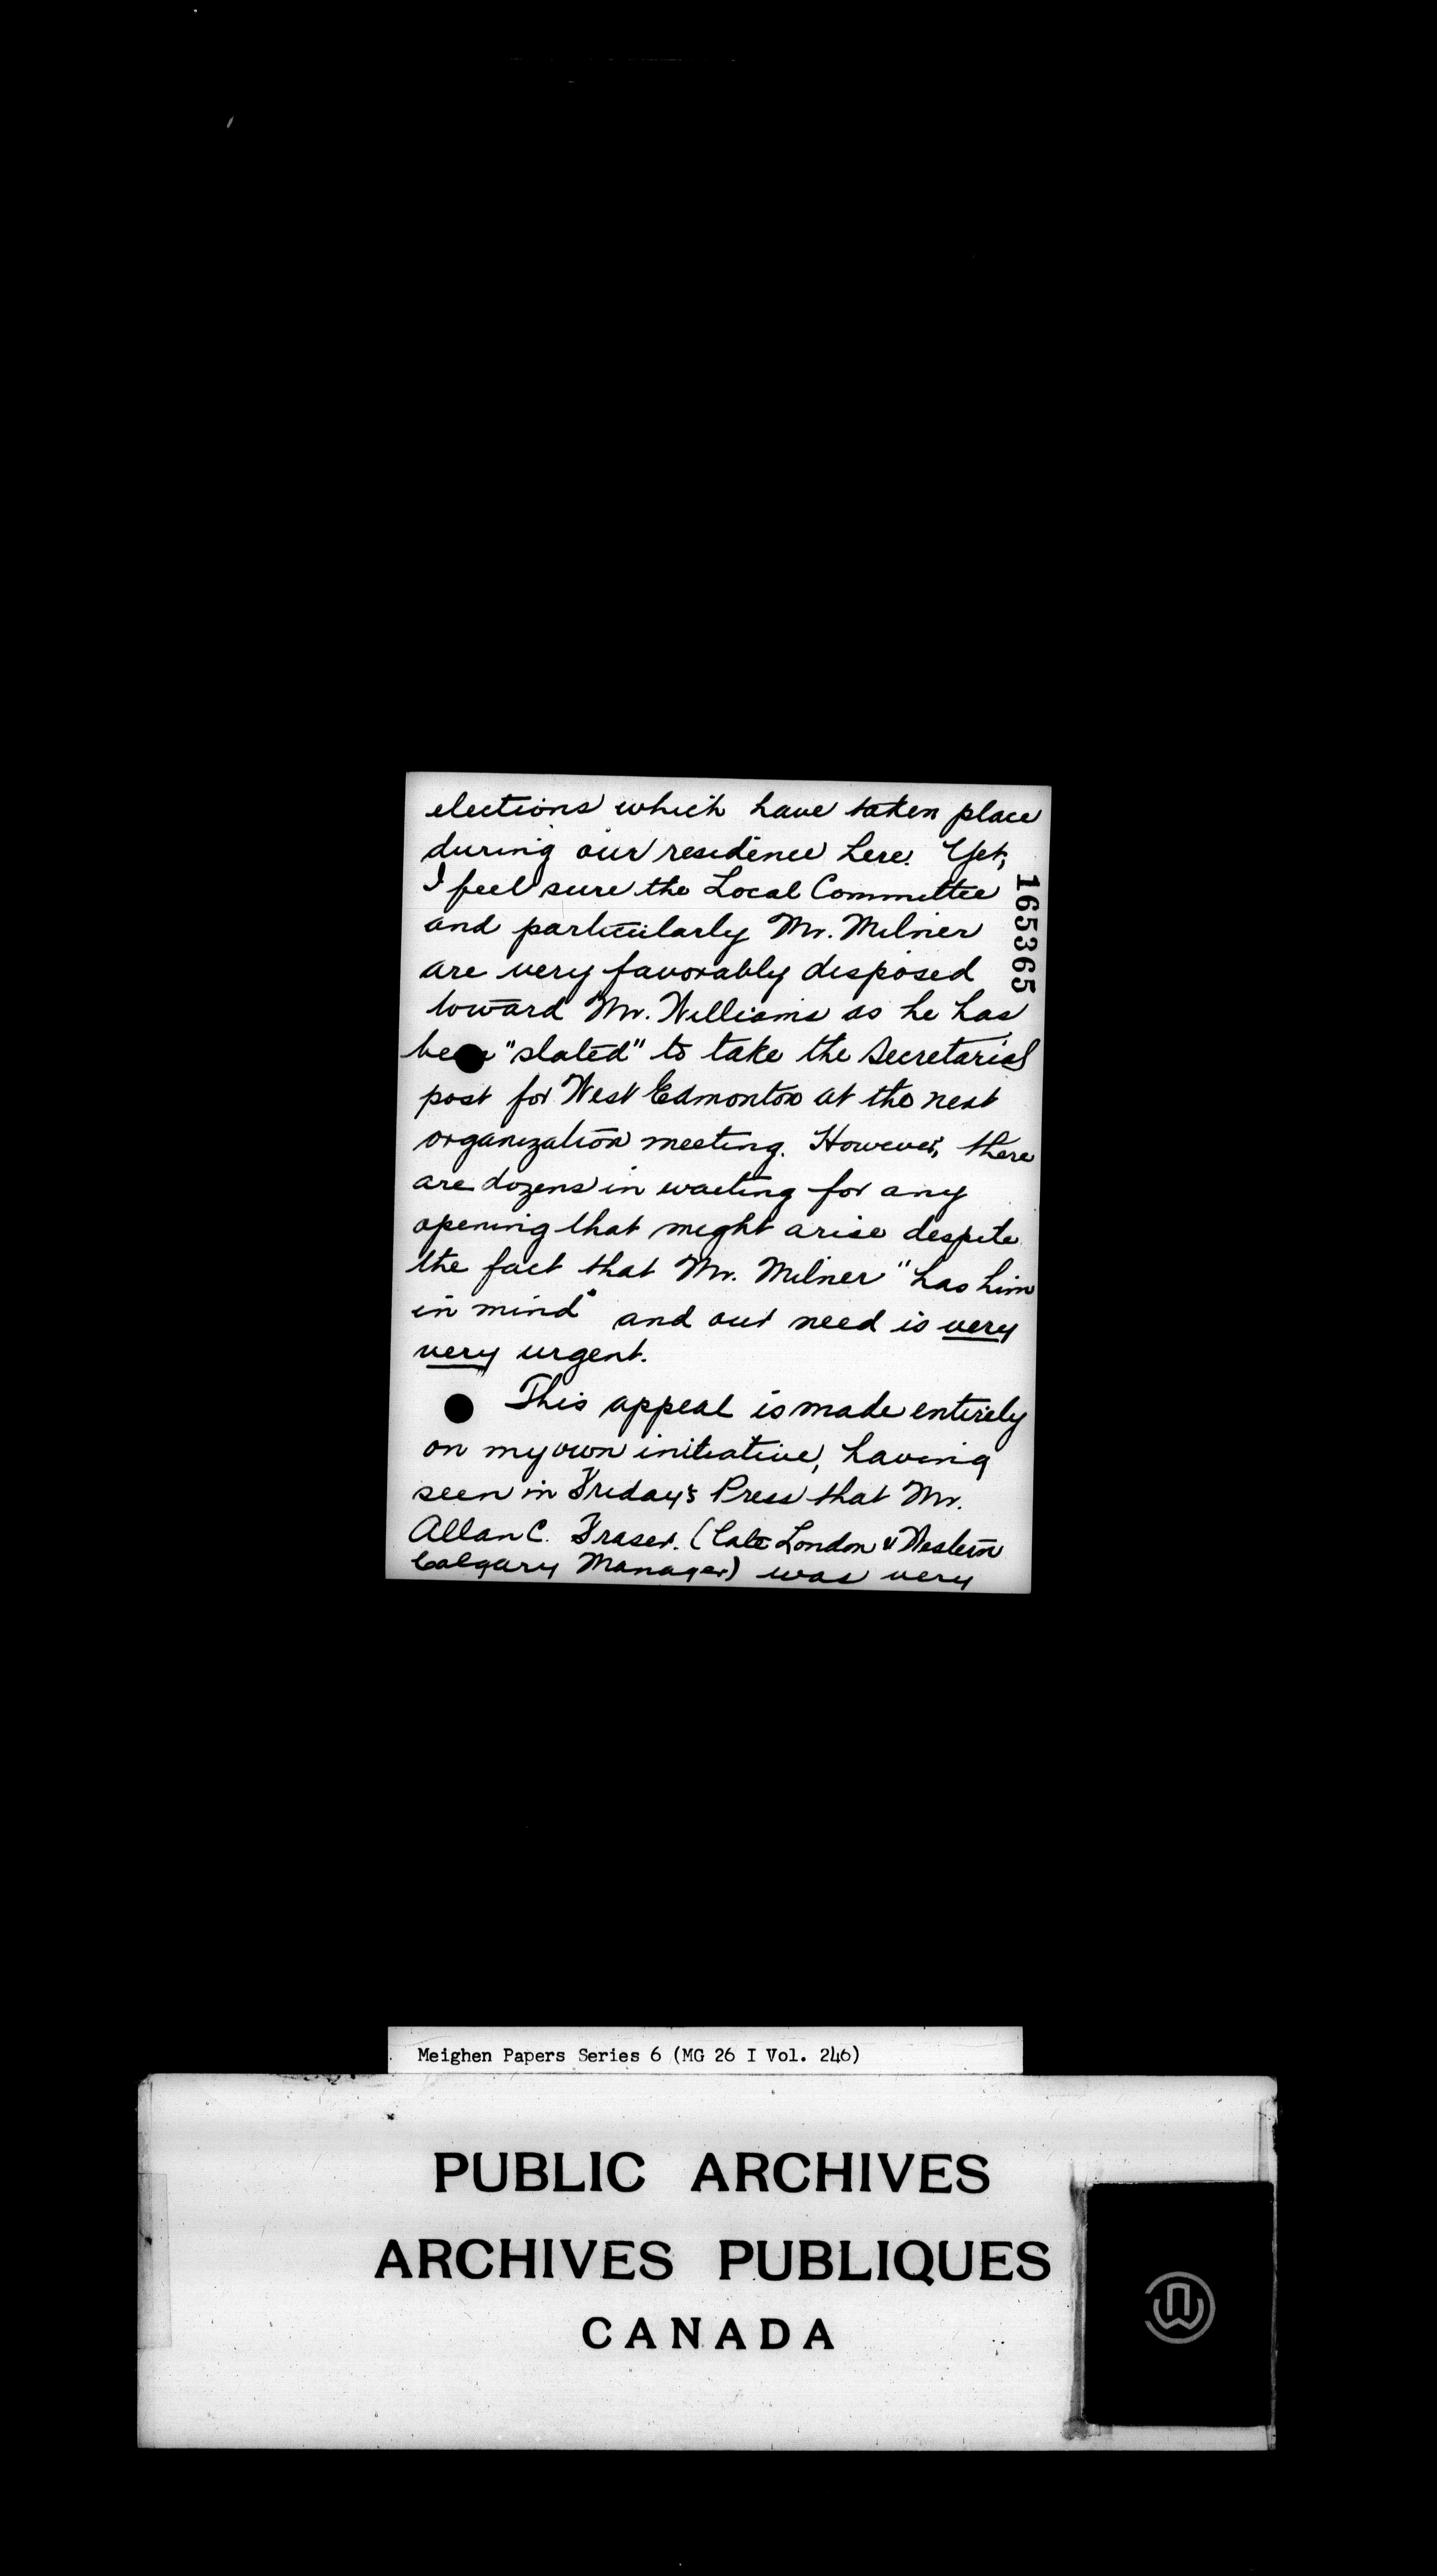 elections which have taken place
during our residence here. Yet,
I feel sure the Local Committee
and particularly Mr. Milner
are very favorably disposed
toward Mr. Williams as he has
been "slated" to take the Secretarial
post for West Edmonton at the next
organization meeting. However, there
are dozens in waiting for any
opening that might arise despite
the fact that Mr. Milner "has him
in mind" and our need is very
very urgent.
This appeal is made entirely
on my own initiative, having
seen in Friday's Press that Mr.
Allan C. Fraser. (late London & Western
Calgary Manager) was very
165365
Meighen Papers Series 6 (MG 26 I Vol. 246)
PUBLIC ARCHIVES
ARCHIVES PUBLIQUES
CANADA